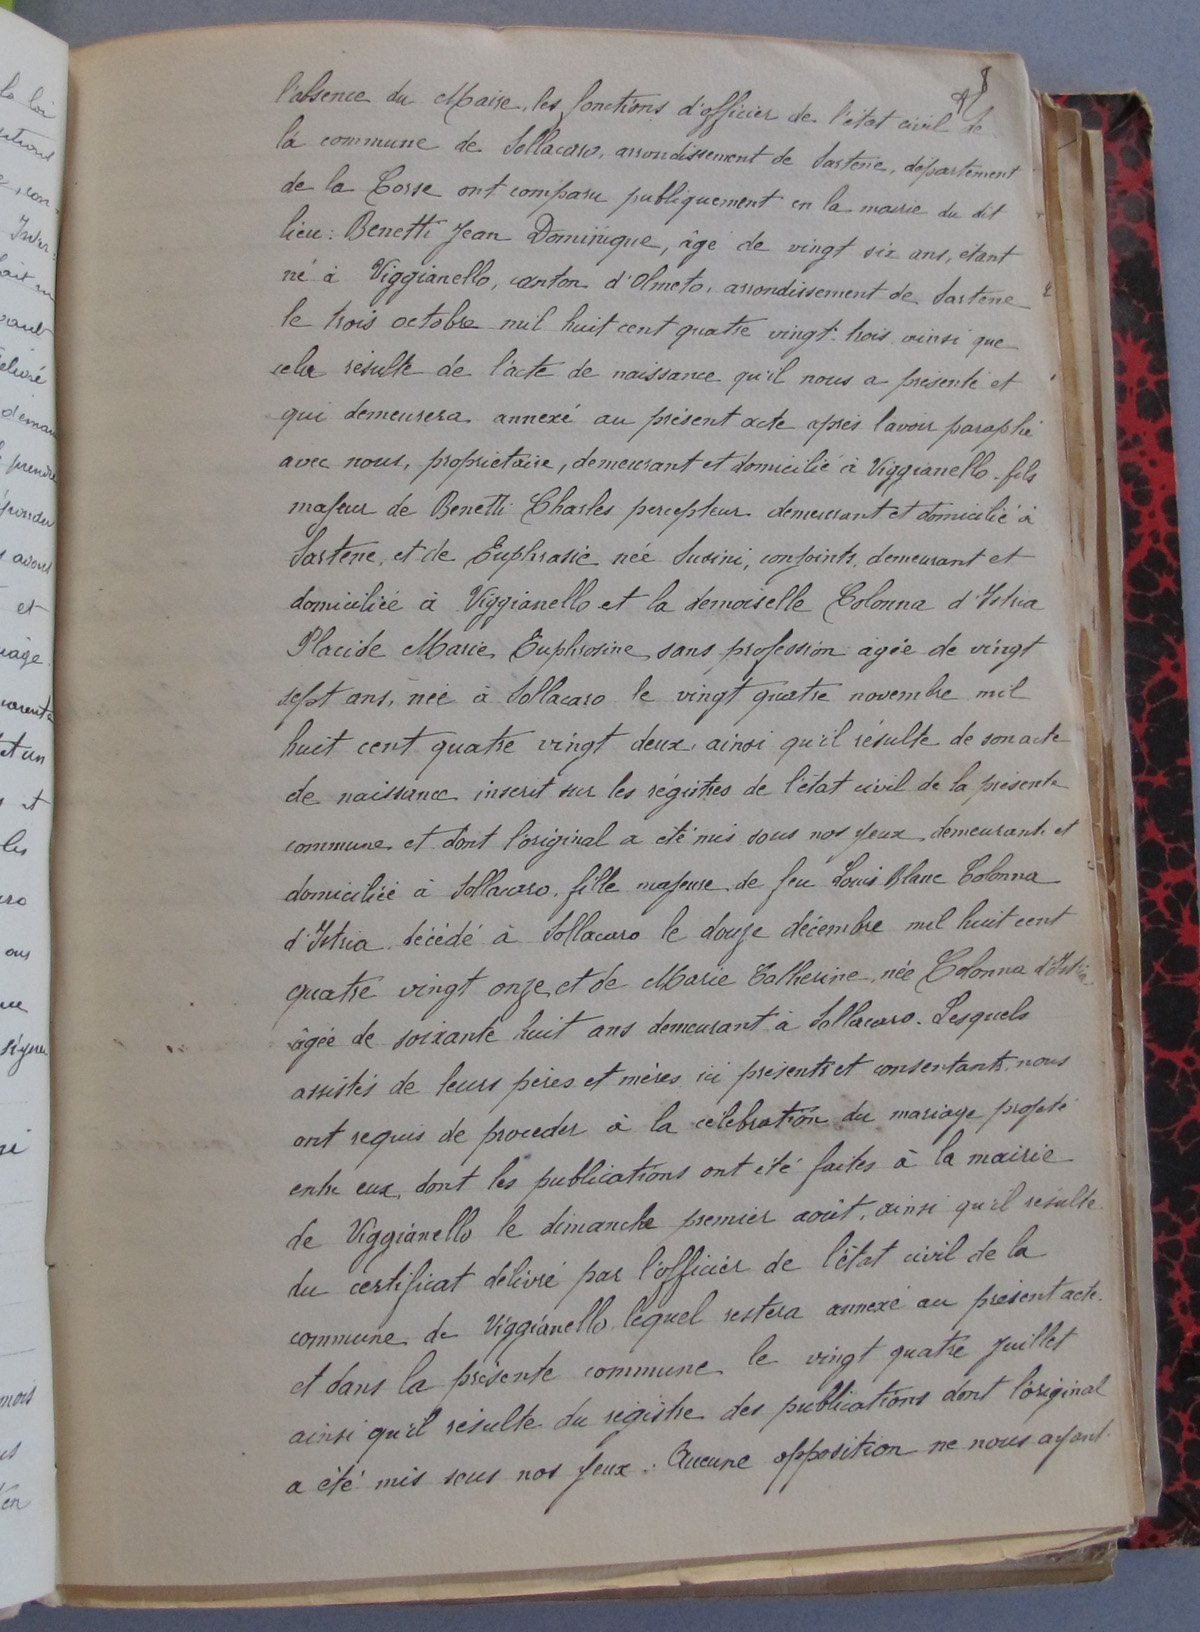 l'absence du Maire, les fonctions d'officier de l'état civil de
la commune de Sollacaro, arrondissement de Sartène, département
de la Corse ont comparu publiquement en la mairie du dit
lieu : Benetti Jean Dominique, âgé de vingt six ans, étant
né à Viggianello, canton d'Olmeto, arrondissement de Sartène
le trois octobre mil huit cent quatre vingt trois ainsi que
cela résulte de l'acte de naissance qu'il nous a présenté et
qui demeurera annexé au présent acte après l'avoir paraphé
avec nous, propriétaire, demeurant et domicilié à Viggianello fils
majeur de Benetti Charles percepteur demeurant et domicilié à
Sartène, et de Euphrasie née Susini, conjoints, demeurant et
domiciliée à Viggianello et la demoiselle Colonna d'Istria
Placide Marie Euphrosine sans profession âgée de vingt
sept ans, née à Sollacaro le vingt quatre novembre mil
huit cent quatre vingt deux, ainsi qu'il résulte de son acte
de naissance inscrit sur les régistres de l'état civil de la présente
commune et dont l'original a été mis sous nos yeux, demeurant et
domiciliée à Sollacaro, fille majeure de feu Louis Blanc Colonna
d'Istria décédé à Sollacaro le douze décembre mil huit cent
quatre vingt onze, et de Marie Catherine née Colonna d'Istria
âgée de soixante huit ans demeurant à Sollacaro. Lesquels
assistés de leurs pères et mères ici présents et consentants, nous
ont requis de procéder à la célébration du mariage projeté
entre eux, dont les publications ont été faites à la mairie
de Viggianello le dimanche premier août, ainsi qu'il résulte
du certificat délivré par l'officier de l'état civil de la
commune de Viggianello lequel restera annexé au présent acte.
et dans la présente commune le vingt quatre juillet
ainsi qu'il résulte du régistre des publications dont l'original
a été mis sous nos yeux. Aucune opposition ne nous ayant